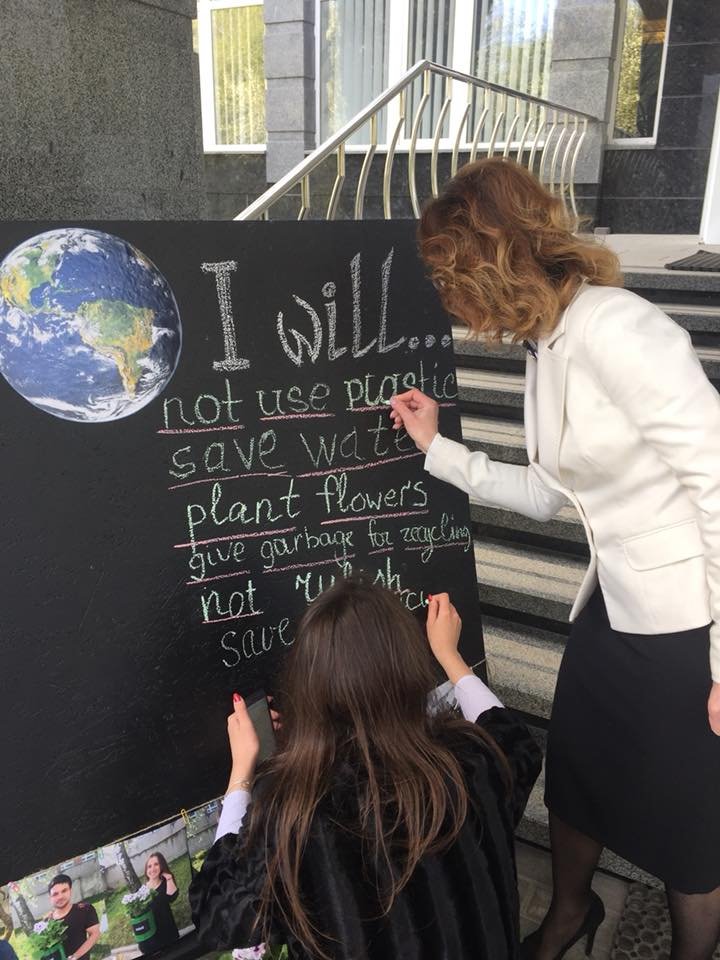 I will...
not use plastic
save water
plant flowers
give garbage for recycling
not rubish
save